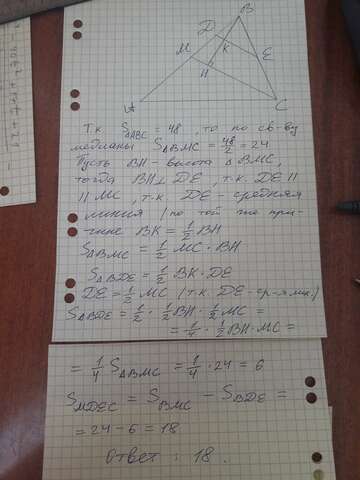 B
D
M
K
E
H
A
C
Т.к S△ABC = 48, то по св-ву
медианы S△BMC = 48/2 = 24
Пусть BH - высота △ BMC,
тогда BH ⊥ DE, т.к. DE ||
|| MC, т.к. DE - средняя
линия / по той же при-
чине BK = 1/2 BH
S△BMC = 1/2 MC · BH
S△BDE = 1/2 BK · DE
DE = 1/2 MC (т.к. DE - ср-я лин.)
S△BDE = 1/2 · 1/2 BH · 1/2 MC =
= 1/4 · 1/2 BH · MC =
= 1/4 S△BMC = 1/4 · 24 = 6
SMDEC = SBMC - SBDE =
= 24 - 6 = 18
Ответ : 18.